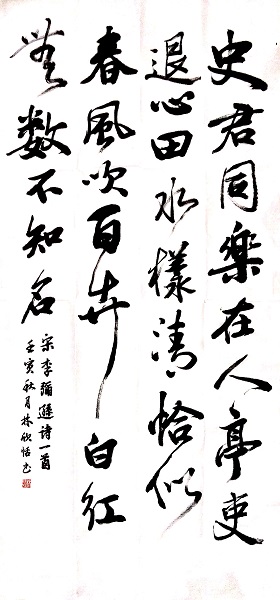 史君同樂在人亭吏
退心田水樣清恰似
春風吹百卉白紅
無數不知名
宋李彌遜詩一首
壬寅秋月林欣恬書